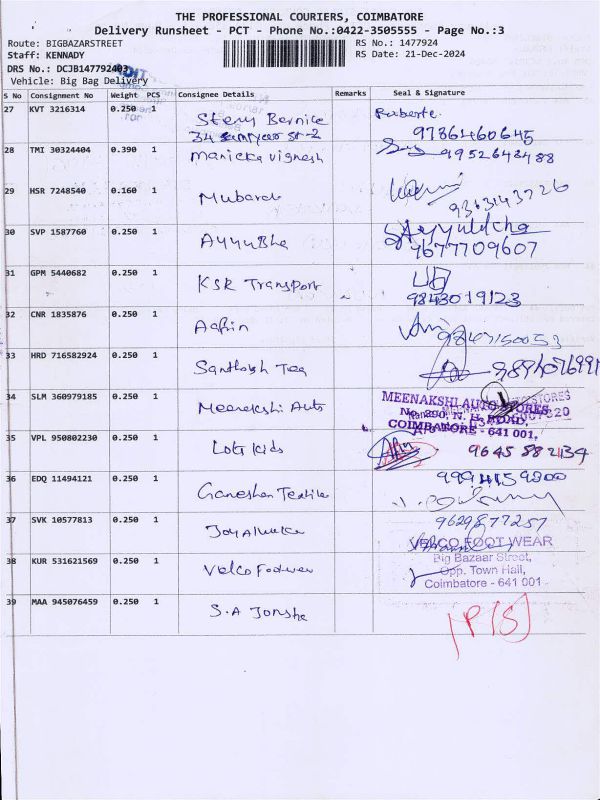 THE PROFESSIONAL COURIERS, COIMBATORE
Delivery Runsheet - PCT - Phone No.:0422-3505555 - Page No.:3
Route: BIGBAZARSTREET RS No.: 1477924
Staff: KENNADY RS Date: 21-Dec-2024
DRS No.: DCJB147792403
Vehicle: Big Bag Delivery
S No Consignment No Weight PCS Consignee Details Remarks Seal & Signature
27 KVT 3216314 0.250 1 Steny Bernice
34 St-2 9786460645
28 TMI 30324404 0.390 1 Manicka Vignesh 9952643488
29 HSR 7248540 0.160 1 Mubarak 9363143726
30 SVP 1587760 0.250 1 Ayyubha
9677709607
31 GPM 5440682 0.250 1 KSR Transport
9843019123
32 CNR 1835876 0.250 1 Aafrin
33 HRD 716582924 0.250 1 Santhosh Tea
34 SLM 360979185 0.250 1 Meenakshi Auto MEENAKSHI AUTO STORES
No. 290, N. H. ROAD,
COIMBATORE - 641 001.
35 VPL 950802230 0.250 1 Lots Kids 9645882134
36 EDQ 11494121 0.250 1 Ganeshan Textile 9994159200
37 SVK 10577813 0.250 1 9629877257
VELCO FOOT WEAR
38 KUR 531621569 0.250 1 Velco Footwear Big Bazaar Street,
Opp. Town Hall,
Coimbatore - 641 001
39 MAA 945076459 0.250 1 S.A